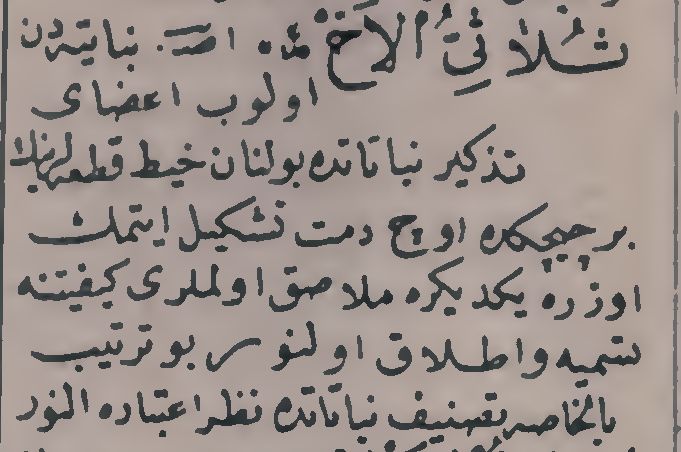 ثلاثى الاخ مذ. اسـ. نباتيتدن
اولوب اعضاى
تذكير نباتاتده بولنان خيط قطعه لرينك
بر چيچكده اوچ دمت تشكيل ايتمك
اوزره يكديكره ملاصق اولملرى كيفيتنه
تسميه واطلاق اولنور بو ترتيب
بالخاصه تصنيف نباتاتده نظر اعتباره النور